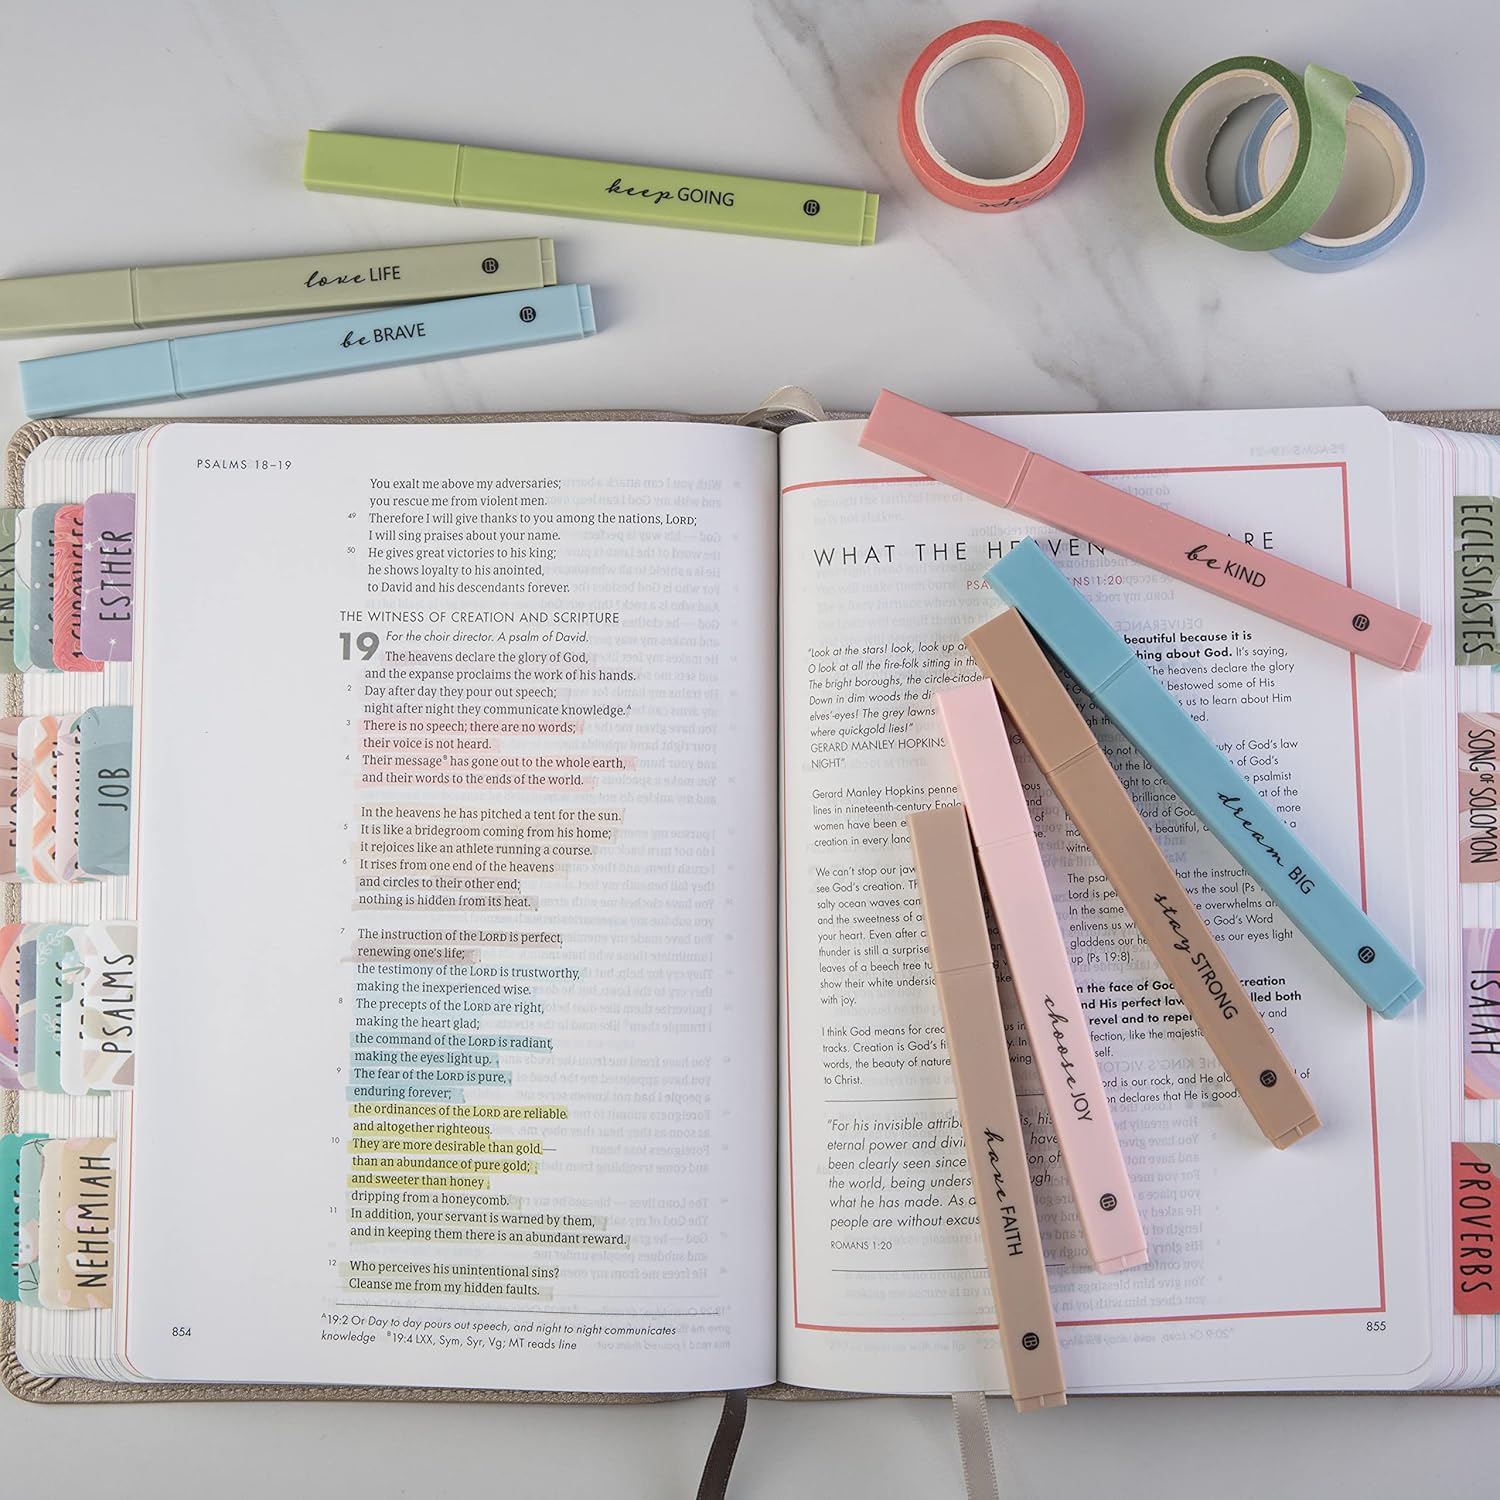 keep GOING
love LIFE
be BRAVE
be KIND
dream BIG
stay STRONG
choose JOY
have FAITH
ESTHER
JOB
PSALMS
NEHEMIAH
ECCLESIASTES
SONG OF SOLOMON
ISAIAH
PROVERBS
PSALMS 18–19
You exalt me above my adversaries;
you rescue me from violent men.
49 Therefore I will give thanks to you among the nations, LORD;
I will sing praises about your name.
50 He gives great victories to his king;
he shows loyalty to his anointed,
to David and his descendants forever.
THE WITNESS OF CREATION AND SCRIPTURE
19 For the choir director. A psalm of David.
The heavens declare the glory of God,
and the expanse proclaims the work of his hands.
2 Day after day they pour out speech;
night after night they communicate knowledge.A
3 There is no speech; there are no words;
their voice is not heard.
4 Their messageB has gone out to the whole earth,
and their words to the ends of the world.
In the heavens he has pitched a tent for the sun.
5 It is like a bridegroom coming from his home;
it rejoices like an athlete running a course.
6 It rises from one end of the heavens
and circles to their other end;
nothing is hidden from its heat.
7 The instruction of the LORD is perfect,
renewing one's life;
the testimony of the LORD is trustworthy,
making the inexperienced wise.
8 The precepts of the LORD are right,
making the heart glad;
the command of the LORD is radiant,
making the eyes light up.
9 The fear of the LORD is pure,
enduring forever;
the ordinances of the LORD are reliable
and altogether righteous.
10 They are more desirable than gold—
than an abundance of pure gold;
and sweeter than honey
dripping from a honeycomb.
11 In addition, your servant is warned by them,
and in keeping them there is an abundant reward.
12 Who perceives his unintentional sins?
Cleanse me from my hidden faults.
A19:2 Or Day to day pours out speech, and night to night communicates
knowledge B19:4 LXX, Sym, Syr, Vg; MT reads line
854
WHAT THE
1:20
"Look at the stars! look, look up
O look at all the fire-folk sitting in
The bright boroughs, the
Down in dim woods the
elves'-eyes! The grey lawns
where quickgold lies!"
GERARD MANLEY HOPKINS
NIGHT"
Gerard Manley Hopkins
lines in nineteenth-century
women have been
creation in every
We can't stop our
see God's creation.
salty ocean waves
and the sweetness of
your heart. Even after
thunder is still a surprise
leaves of a beech tree
show their white
with joy.
I think God means for
tracks. Creation is God's
words, the beauty of nature
to Christ.
"For his invisible
eternal power and
been clearly seen since
the world, being
what he has made.
people are without
ROMANS 1:20
beautiful because it is
about God. It's saying,
The heavens declare the glory
bestowed some of His
us to learn about Him
of God's law
of God's
psalmist
of the
more
a
that the
the soul (Ps
overwhelms
to God's Word
our eyes light
up (Ps 19:8).
the face of
and His perfect
both
revel and to
like the
is our rock, and He
declares that He is good.
855